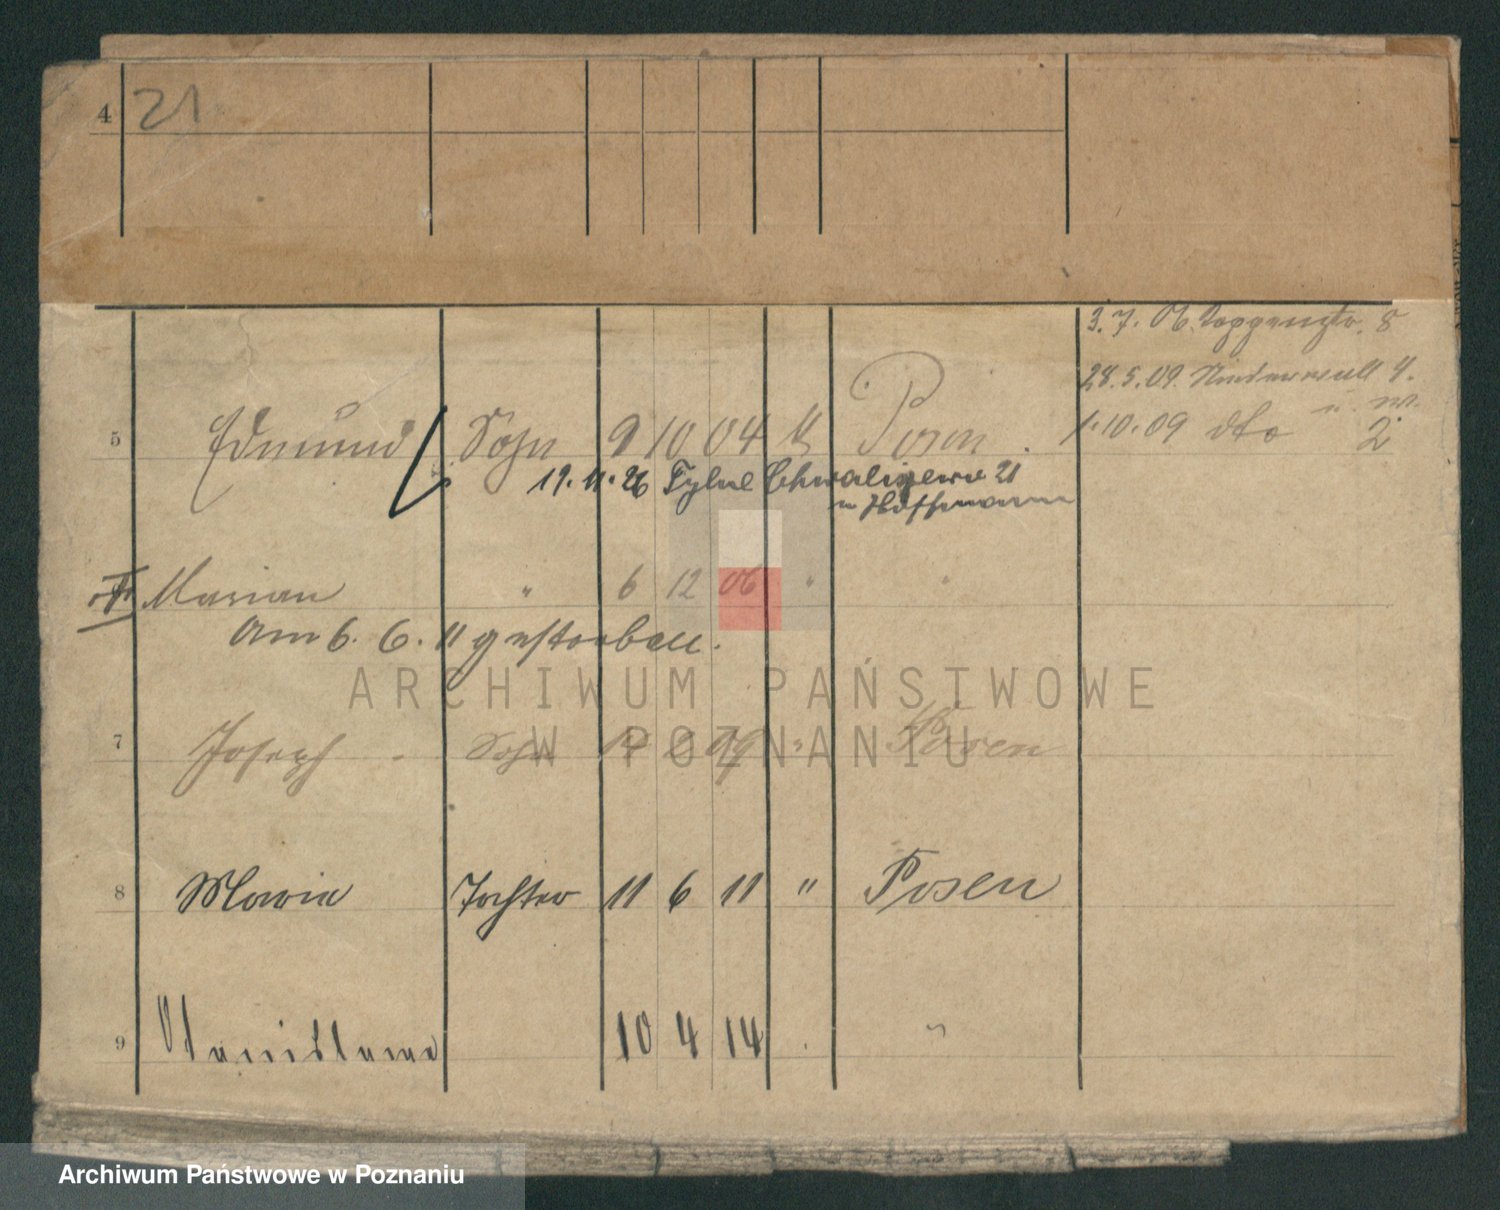 4 21
3. 7. 06.
28. 5. 09. Niederwall 4.
5 Edmund Sohn 9 10 04 k Posen 1.10.09 dto 2
19. 11. 26 Tylne Chwaliszewo 21
Hoffmann
Marian " 6 12 06 "
Am 6. 6. 11 gestorben.
ARCHIWUM PAŃSTWOWE
W POZNANIU
7 Joseph Sohn 09 " Posen
8 Maria Tochter 11 6 11 " Posen
9 Stanislawa 10 4 14 "
Archiwum Państwowe w Poznaniu